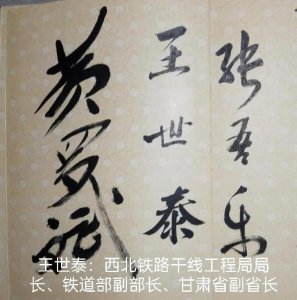 张吾乐
王世泰
黄罗斌
王世泰：西北铁路干线工程局局
长、铁道部副部长、甘肃省副省长